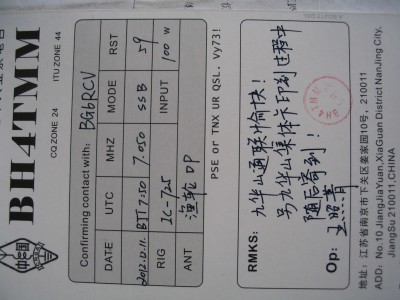 BH4TMM
CQ ZONE 24
ITU ZONE 44
Confirming contact with: BG6RCV
DATE UTC MHZ MODE RST
2012.10.11. BJT 7:50 7.050 SSB 59
RIG INPUT
IC-725 100W
ANT 渔轮 DP
PSE or TNX UR QSL. Vy73!
RMKS: 九华山通联愉快!
另九华山集体卡印制过程中
随后寄到!
Op:
BH4TMM
地址:江苏省南京市下关区姜家园10号, 210011
ADD: No.10 JiangJiaYuan,XiaGuan District NanJing City,
JiangSu 210011, China